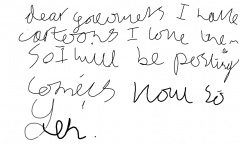 dear governets I make
cartoons I love them
so I will be posting
comics now so
Yeh.